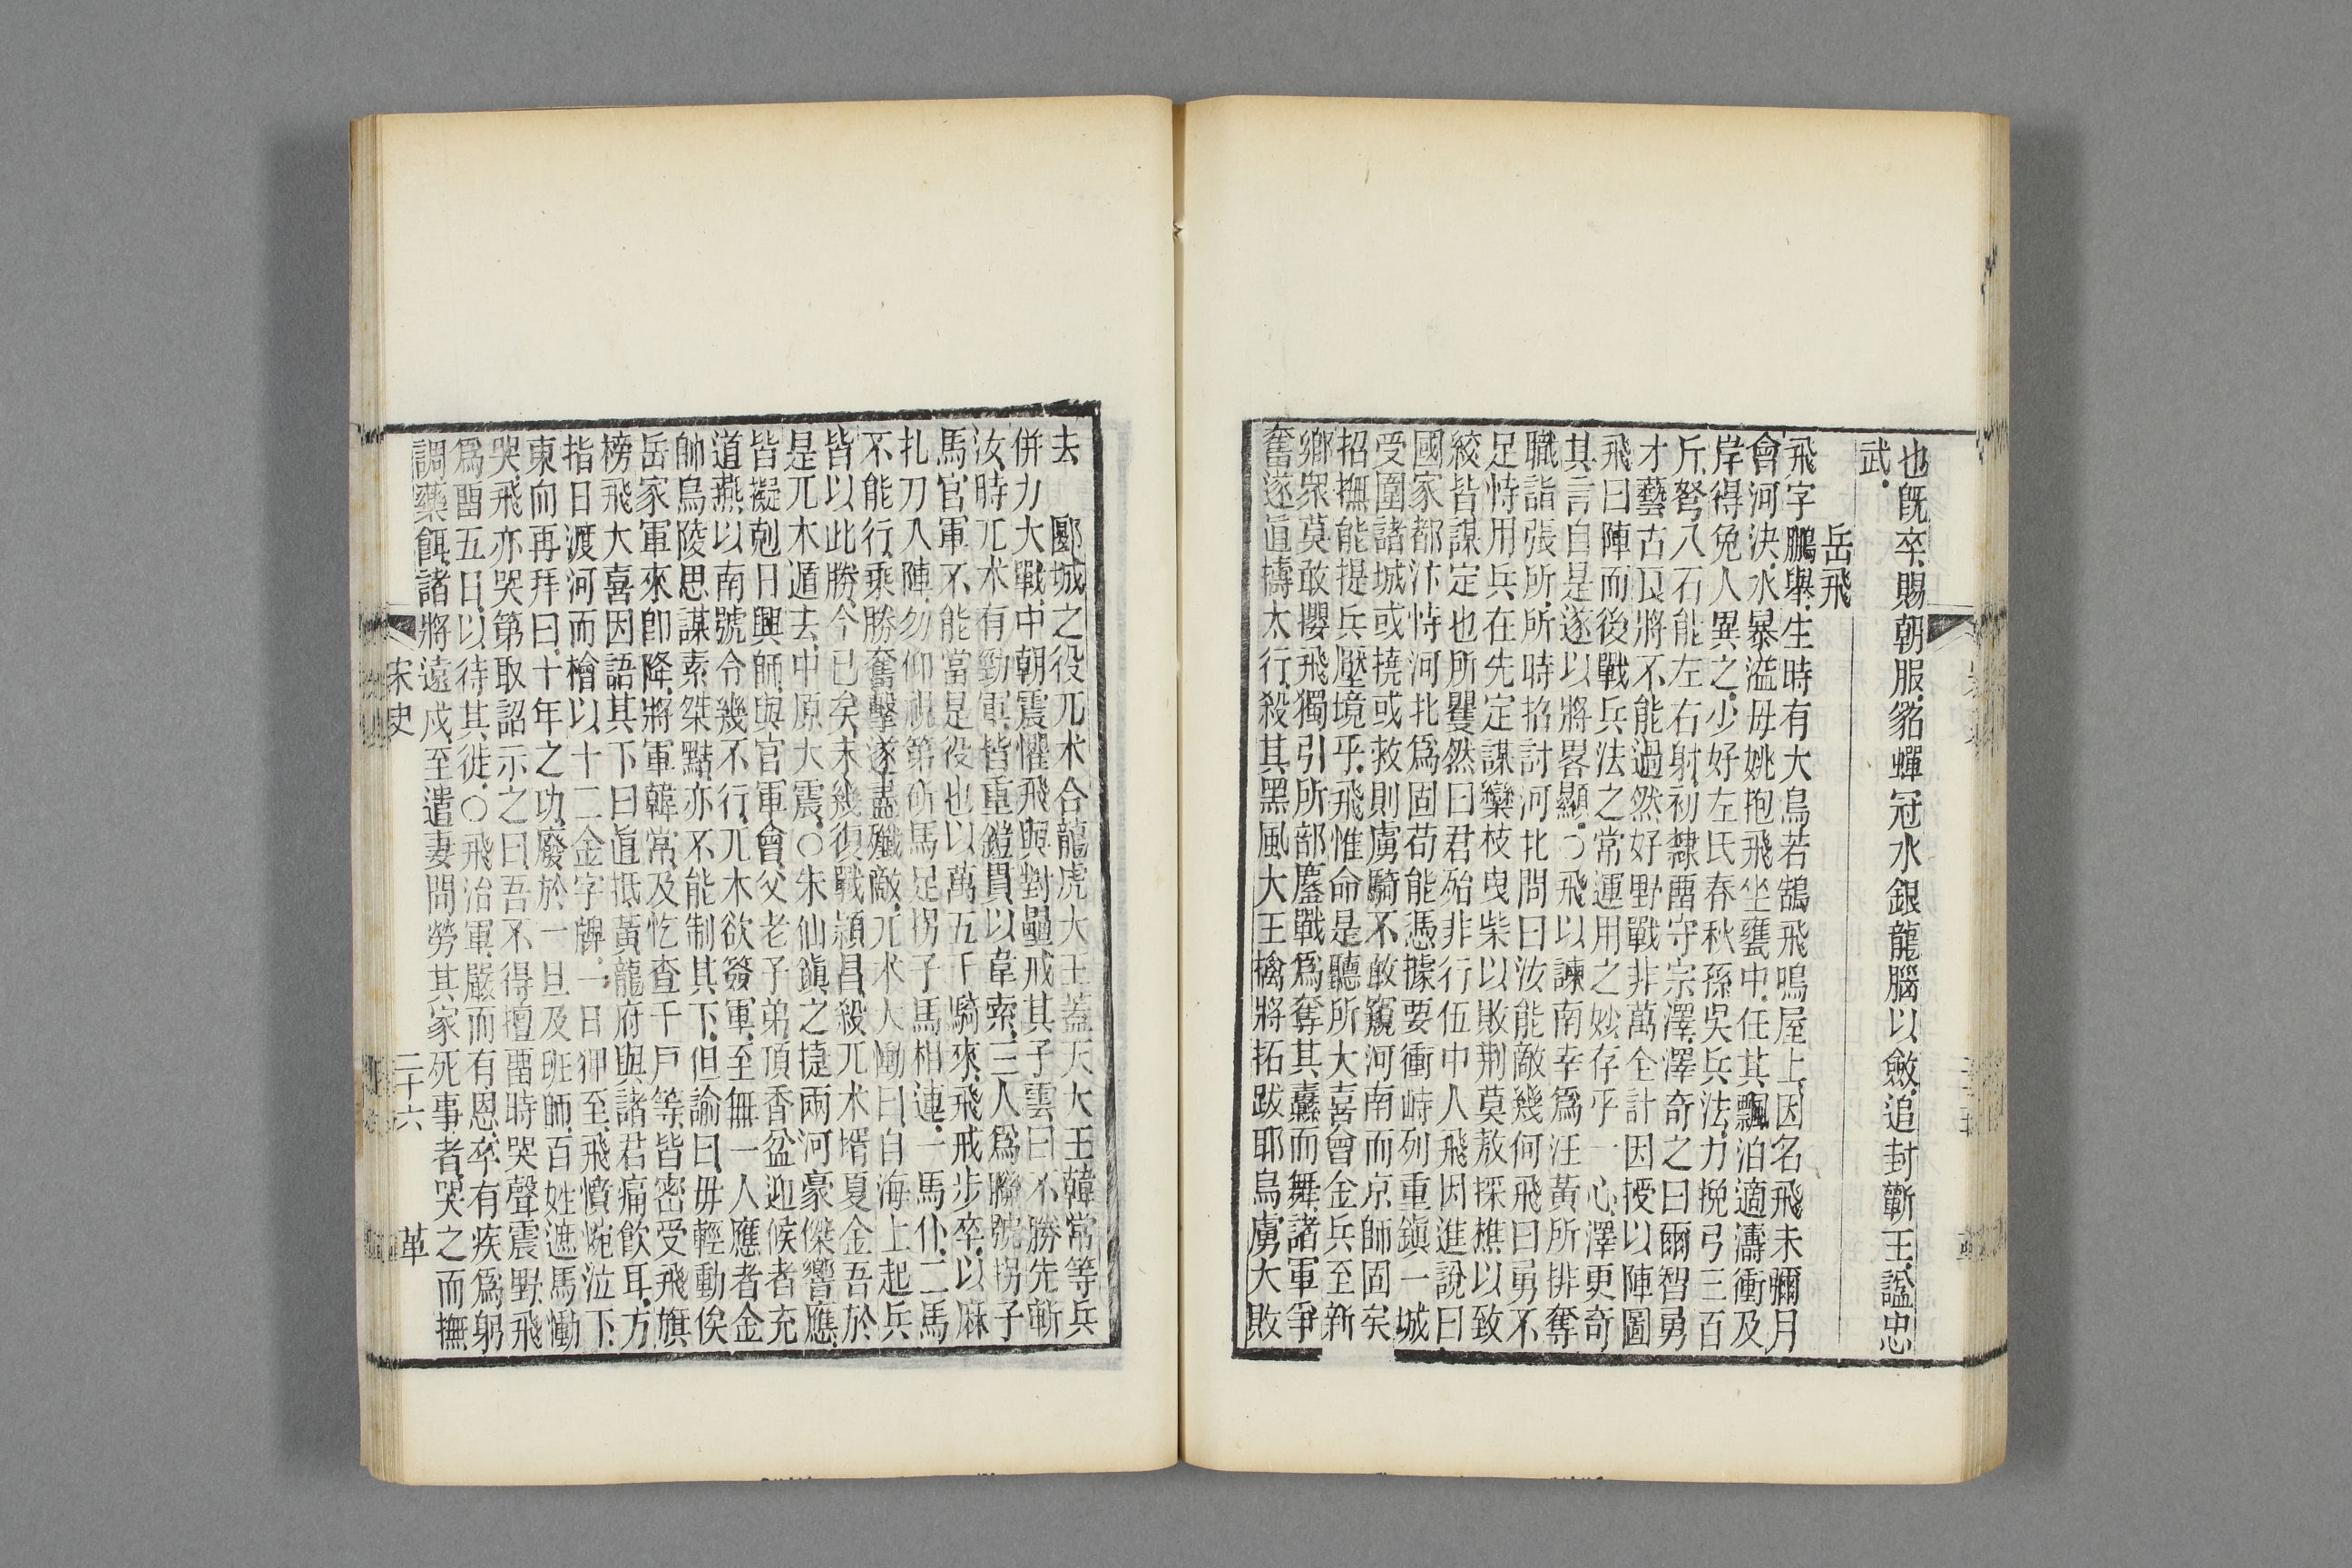 也既卒賜朝服貂蟬冠水銀龍腦以斂追封蘄王諡忠
武
岳飛
飛字鵬舉生時有大鳥若鵠飛鳴屋上因名飛未彌月
會河決水暴溢毋姚抱飛坐甕中任其飄泊適濤衝及
岸得免人異之少好左氏春秋孫吳兵法力挽弓三百
斤弩八石能左右射初隸畱守宗澤澤奇之曰爾智勇
才藝古良將不能過然好野戰非萬全計因授以陣圖
飛曰陣而後戰兵法之常運用之妙存乎一心澤更奇
其言自是遂以將畧顯○飛以諫南幸爲汪黃所排奪
職詣張所所時招討河北問曰汝能敵幾何飛曰勇不
足恃用兵在先定謀欒枝曳柴以敗荆莫敖採樵以致
絞皆謀定也所矍然曰君殆非行伍中人飛因進說曰
國家都汴恃河北爲固苟能憑據要衝峙列重鎭一城
受圍諸城或撓或救則虜騎不敢窺河南而京師固矣
招撫能提兵壓境乎飛惟命是聽所大喜會金兵至新
鄉眾莫敢攖飛獨引所部鏖戰爲奪其纛而舞諸軍爭
奮遂直擣太行殺其黑風大王擒將拓跋耶烏虜大敗
去 郾城之役兀术合龍虎大王蓋天大王韓常等兵
併力大戰中朝震懼飛與對壘戒其子雲曰不勝先斬
汝時兀术有勁軍皆重鎧貫以韋索三人爲聯號拐子
馬官軍不能當是役也以萬五千騎來飛戒步卒以麻
扎刀入陣勿仰視第斫馬足拐子馬相連一馬仆二馬
不能行乘勝奮擊遂盡殲敵兀术大慟曰自海上起兵
皆以此勝今已矣未幾復戰潁昌殺兀术壻夏金吾於
是兀木遁去中原大震○朱仙鎭之捷兩河豪傑響應
皆擬剋日興師與官軍會父老子弟頂香盆迎候者充
道燕以南號令幾不行兀木欲簽軍至無一人應者金
帥烏陵思謀素桀黠亦不能制其下但諭曰毋輕動俟
岳家軍來卽降將軍韓常及忔查千戶等皆密受飛旗
榜飛大喜因語其下曰直抵黃龍府與諸君痛飲耳方
指日渡河而檜以十二金字牌一日狎至飛憤惋泣下
東向再拜曰十年之功廢於一旦及班師百姓遮馬慟
哭飛亦哭第取詔示之曰吾不得擅畱時哭聲震野飛
爲畱五日以待其徙○飛治軍嚴而有恩卒有疾爲躬
調藥餌諸將遠戍至遣妻問勞其家死事者哭之而撫
宋史 二十六 革